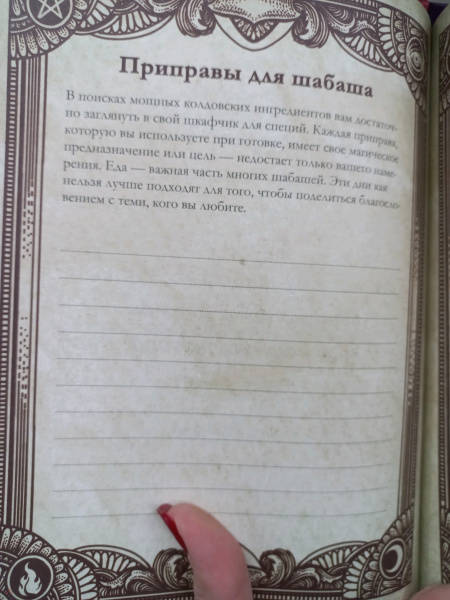 Приправы для шабаша
В поисках мощных колдовских ингредиентов вам достаточ-
но заглянуть в свой шкафчик для специй. Каждая приправа,
которую вы используете при готовке, имеет свое магическое
предназначение или цель — недостает только вашего наме-
рения. Еда — важная часть многих шабашей. Эти дни как
нельзя лучше подходят для того, чтобы поделиться благосло-
вением с теми, кого вы любите.